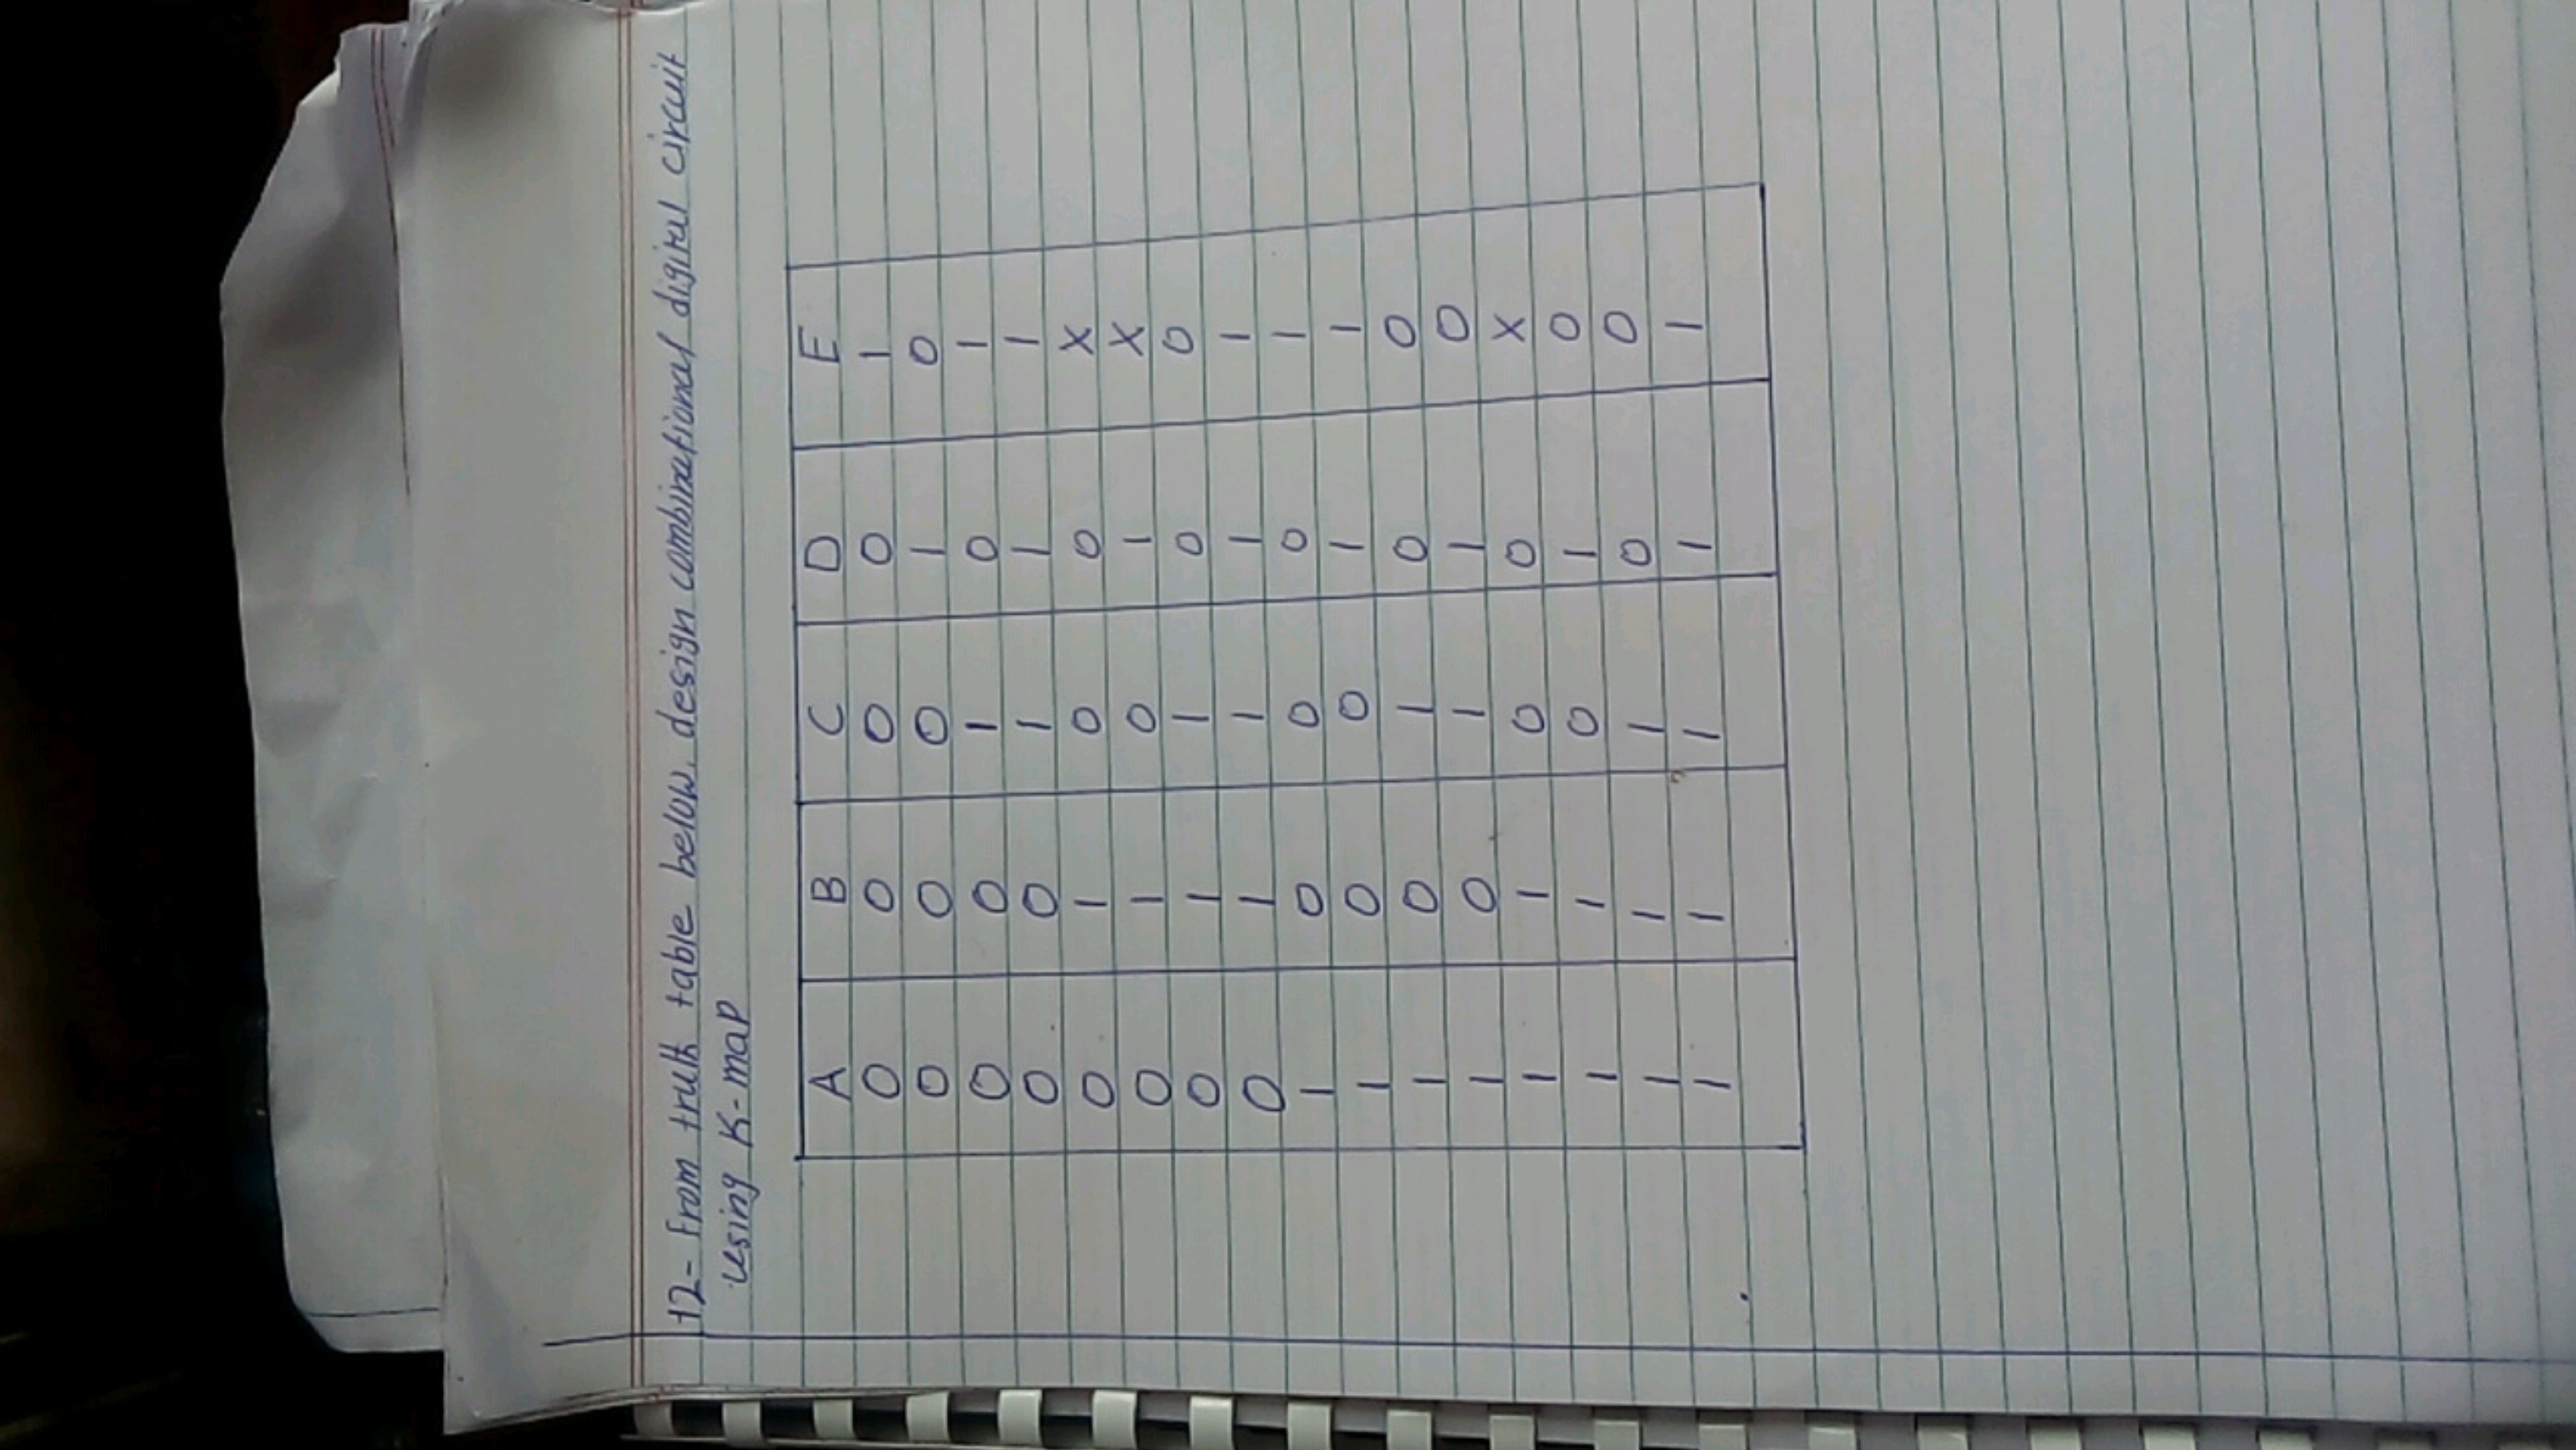 12- From truth table below, design combinational digital circuit
using K-map
A B C D E
0 0 0 0 1
0 0 0 1 0
0 0 1 0 1
0 0 1 1 1
0 1 0 0 X
0 1 0 1 X
0 1 1 0 0
0 1 1 1 1
1 0 0 0 1
1 0 0 1 1
1 0 1 0 0
1 0 1 1 0
1 1 0 0 X
1 1 0 1 0
1 1 1 0 0
1 1 1 1 1